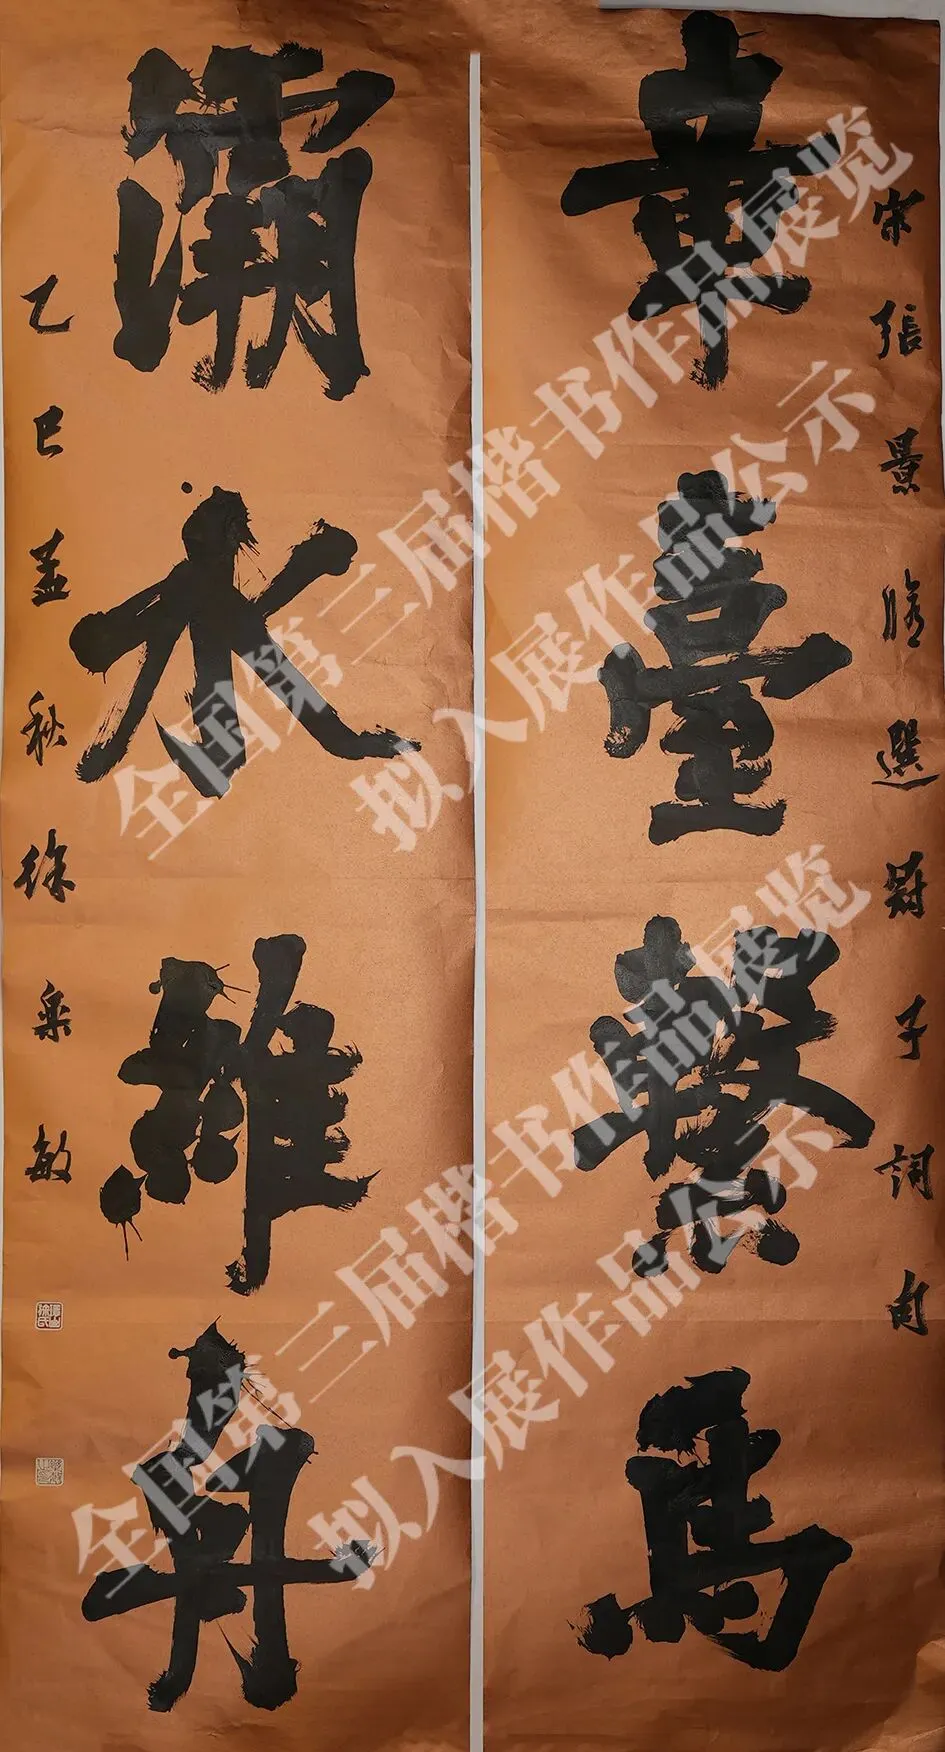 宋張景脩選冠子詞句
章臺繫馬
灞水維舟
乙巳孟秋徐樂敏
全国第三届楷书作品展览
拟入展作品公示
全国第三届楷书作品展览
拟入展作品公示